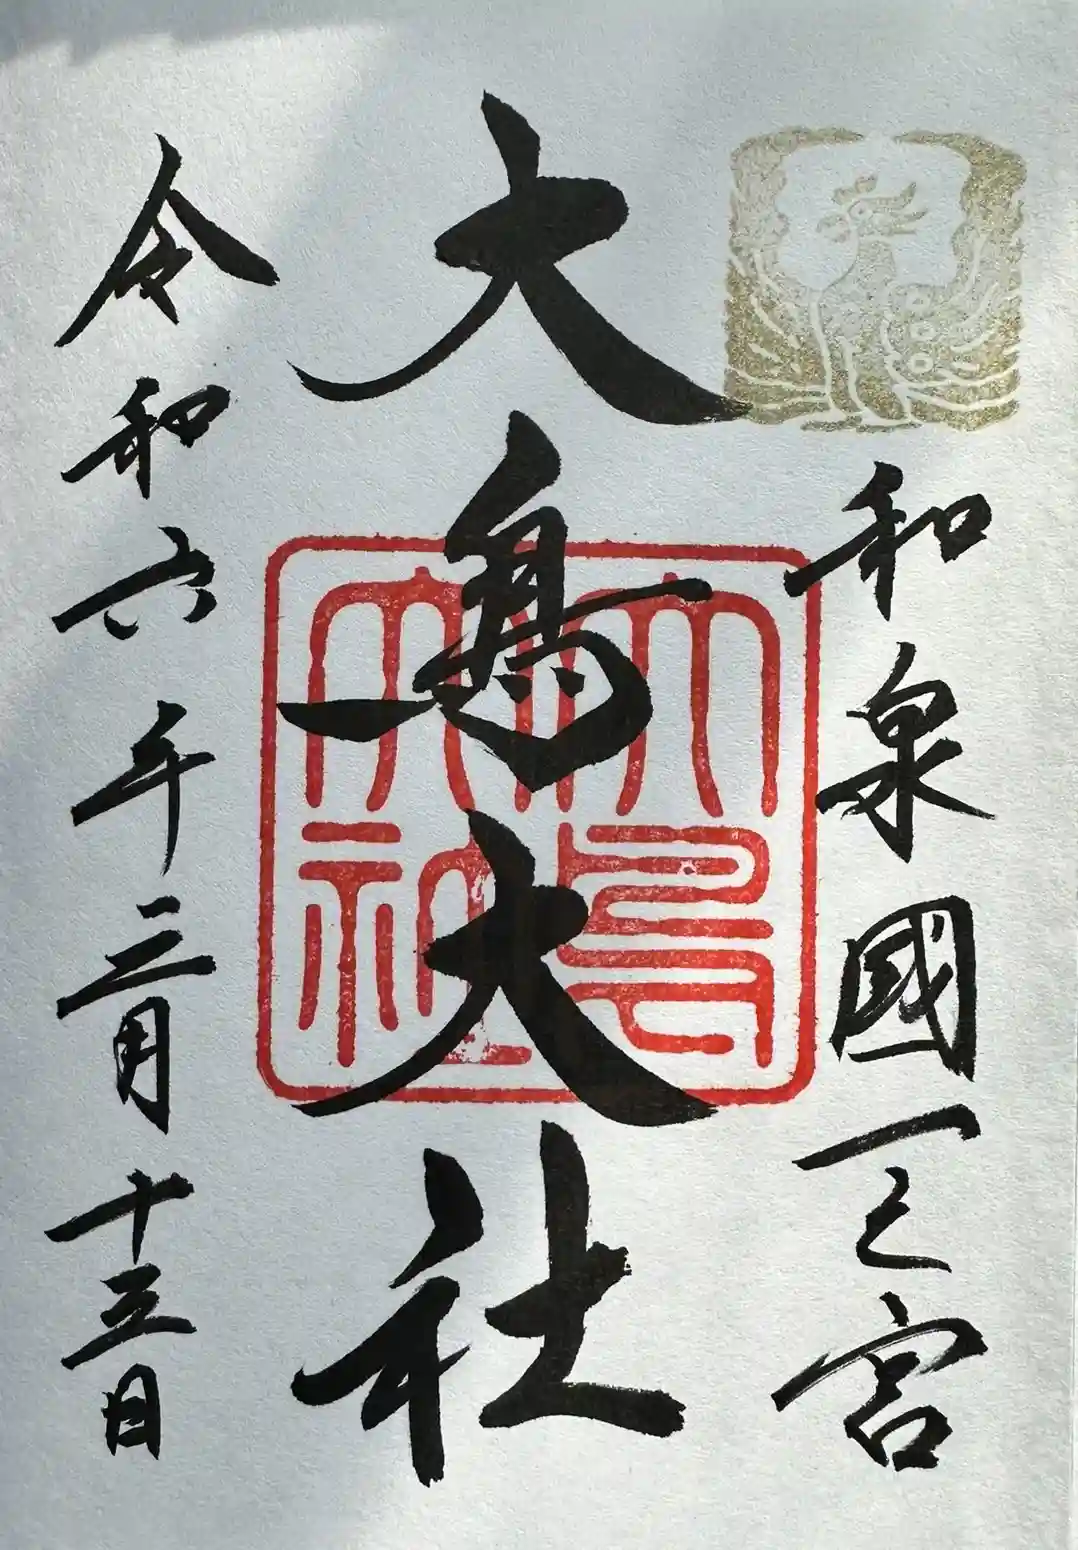 和泉國一之宮
大鳥大社
大鳥大社
令和六年三月十三日